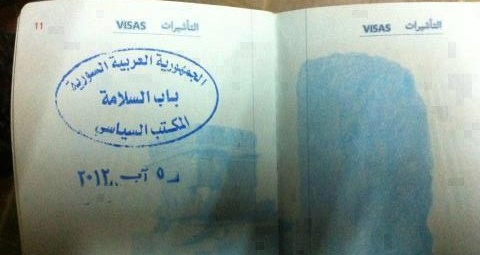 11
VISAS التأشيرات
الجمهورية العربية السورية
باب السلامة
المكتب السياسي
٥ آب ٢٠١٢
VISAS التأشيرات